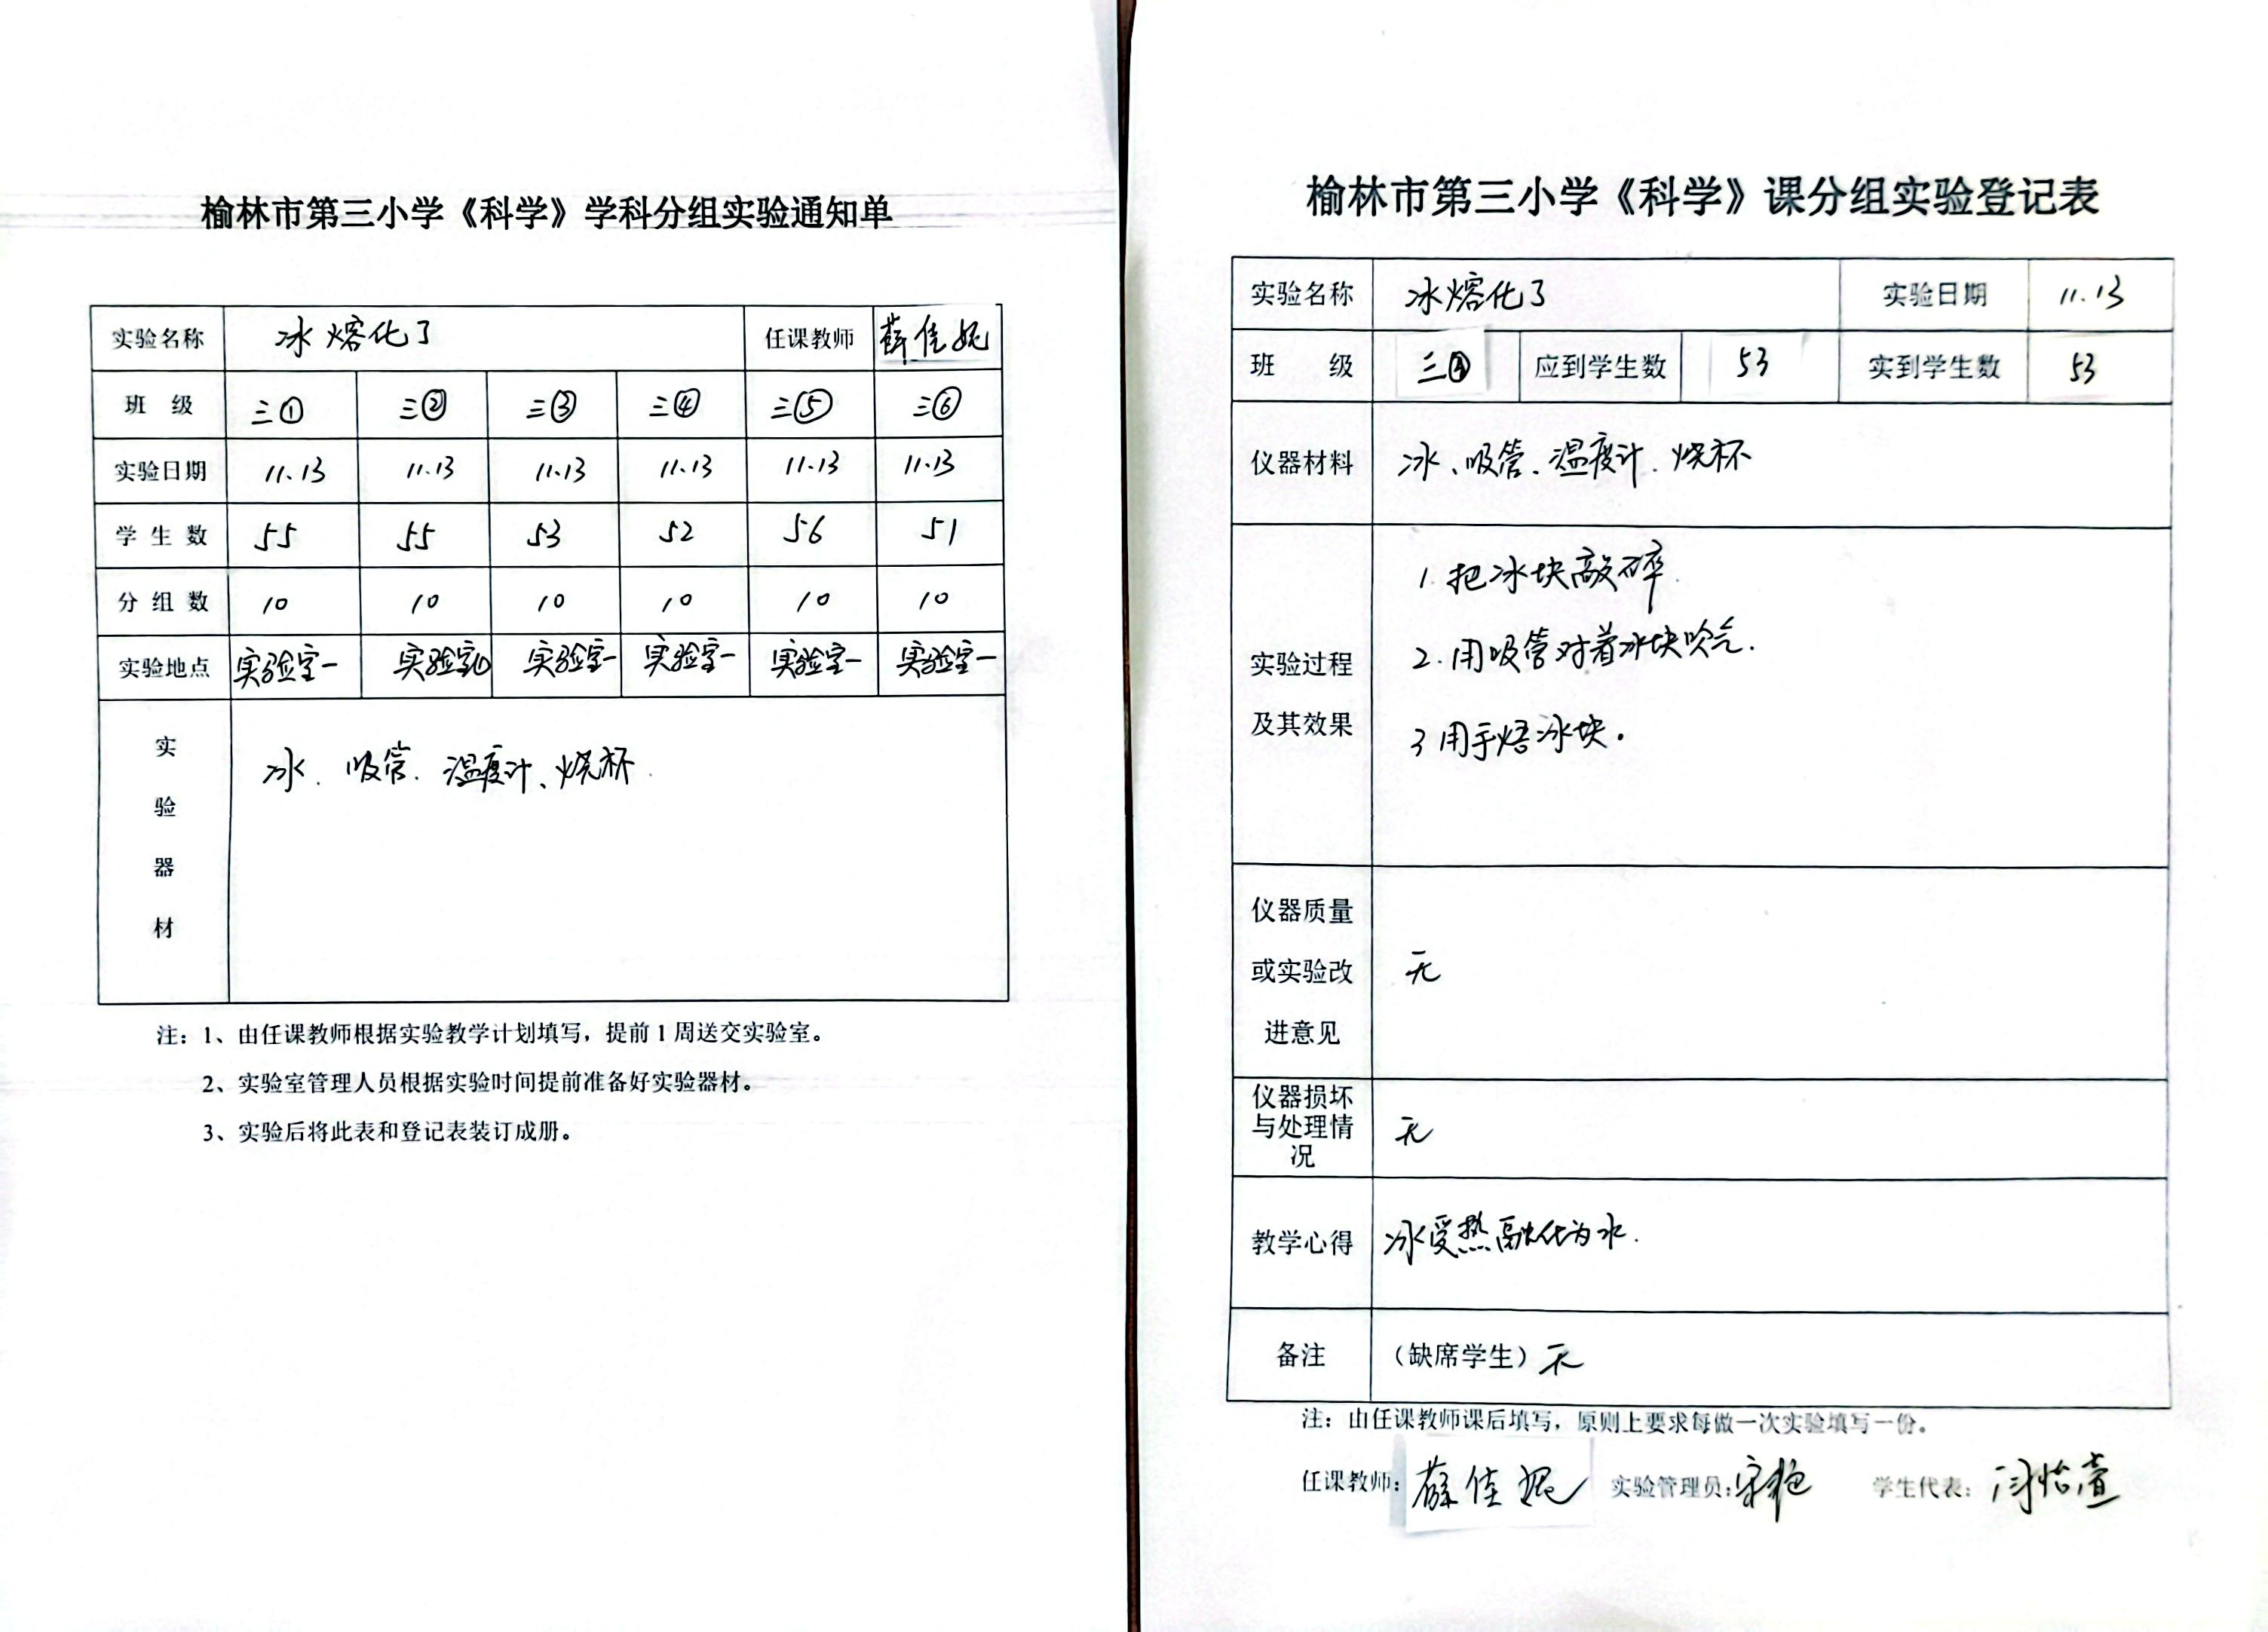 榆林市第三小学《科学》学科分组实验通知单
实验名称 冰熔化了 任课教师 薛佳妮
班 级 三① 三② 三③ 三④ 三⑤ 三⑥
实验日期 11.13 11.13 11.13 11.13 11.13 11.13
学 生 数 55 55 53 52 56 51
分 组 数 10 10 10 10 10 10
实验地点 实验室一 实验室 实验室一 实验室一 实验室一 实验室一
实验器材 冰、吸管、温度计、烧杯.
注：1、由任课教师根据实验教学计划填写，提前1周送交实验室。
2、实验室管理人员根据实验时间提前准备好实验器材。
3、实验后将此表和登记表装订成册。
榆林市第三小学《科学》课分组实验登记表
实验名称 冰熔化了 实验日期 11.13
班 级 三 应到学生数 53 实到学生数 53
仪器材料 冰、吸管、温度计、烧杯
实验过程及其效果
1.把冰块敲碎.
2.用吸管对着冰块吹气.
3 用手焐冰块.
仪器质量或实验改进意见 无
仪器损坏与处理情况 无
教学心得 冰受热融化为水.
备注 （缺席学生）无
注：由任课教师课后填写，原则上要求每做一次实验填写一份。
任课教师：薛佳妮 实验管理员：宋艳 学生代表：闫怡萱